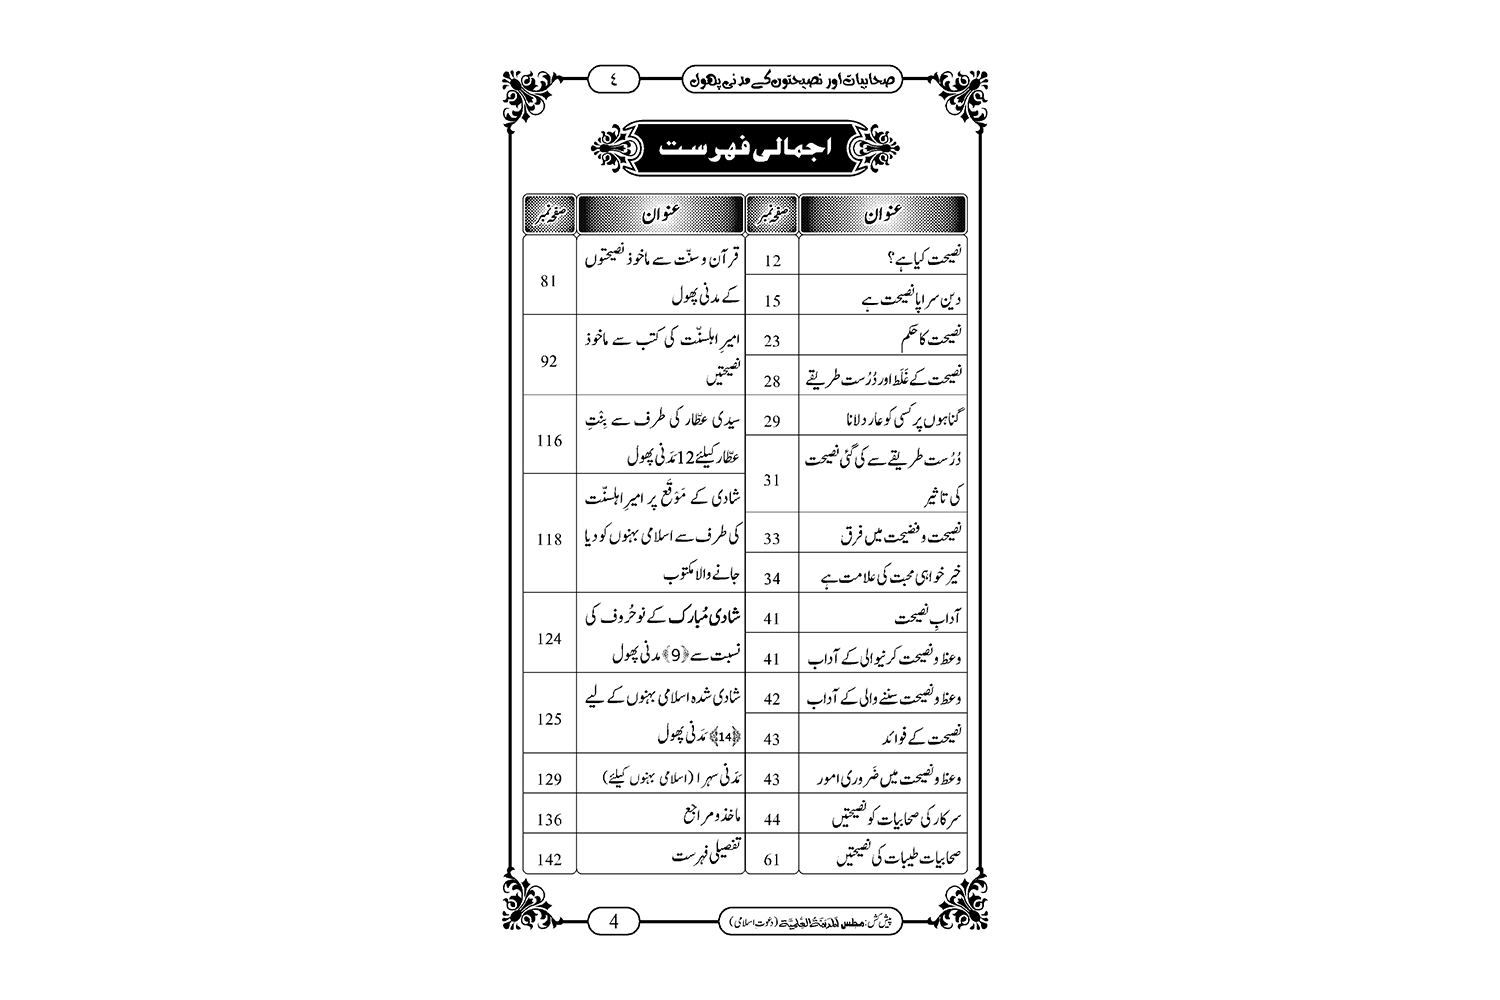 صحابیات اور نصیحتوں کے مدنی پھول
٤
اجمالی فہرست
عنوان صفحہ نمبر عنوان صفحہ نمبر
نصیحت کیا ہے؟ 12
دین سراپا نصیحت ہے 15
نصیحت کا حکم 23
نصیحت کے غَلَط اور دُرُست طریقے 28
گناہوں پر کسی کو عار دلانا 29
دُرُست طریقے سے کی گئی نصیحت
کی تاثیر 31
نصیحت و فضیحت میں فرق 33
خیر خواہی محبت کی علامت ہے 34
آدابِ نصیحت 41
وعظ و نصیحت کرنیوالی کے آداب 41
وعظ و نصیحت سننے والی کے آداب 42
نصیحت کے فوائد 43
وعظ و نصیحت میں ضَروری امور 43
سرکار کی صحابیات کو نصیحتیں 44
صحابیات طیبات کی نصیحتیں 61
قرآن و سنّت سے ماخوذ نصیحتوں
کے مدنی پھول 81
امیرِ اہلسنّت کی کتب سے ماخوذ
نصیحتیں 92
سیدی عطّار کی طرف سے بِنْتِ
عطّار کیلئے 12 مَدَنی پھول 116
شادی کے مَوْقَع پر امیرِ اہلسنّت
کی طرف سے اسلامی بہنوں کو دیا
جانے والا مکتوب 118
شادی مُبارک کے نو حُروف کی
نسبت سے ﴿9﴾ مدنی پھول 124
شادی شدہ اسلامی بہنوں کے لیے
﴿14﴾ مَدَنی پھول 125
مَدَنی سہرا (اسلامی بہنوں کیلئے) 129
ماخذ و مراجع 136
تفصیلی فہرست 142
پیش کش: مجلس المدینۃ العلمیۃ (دعوتِ اسلامی)
4